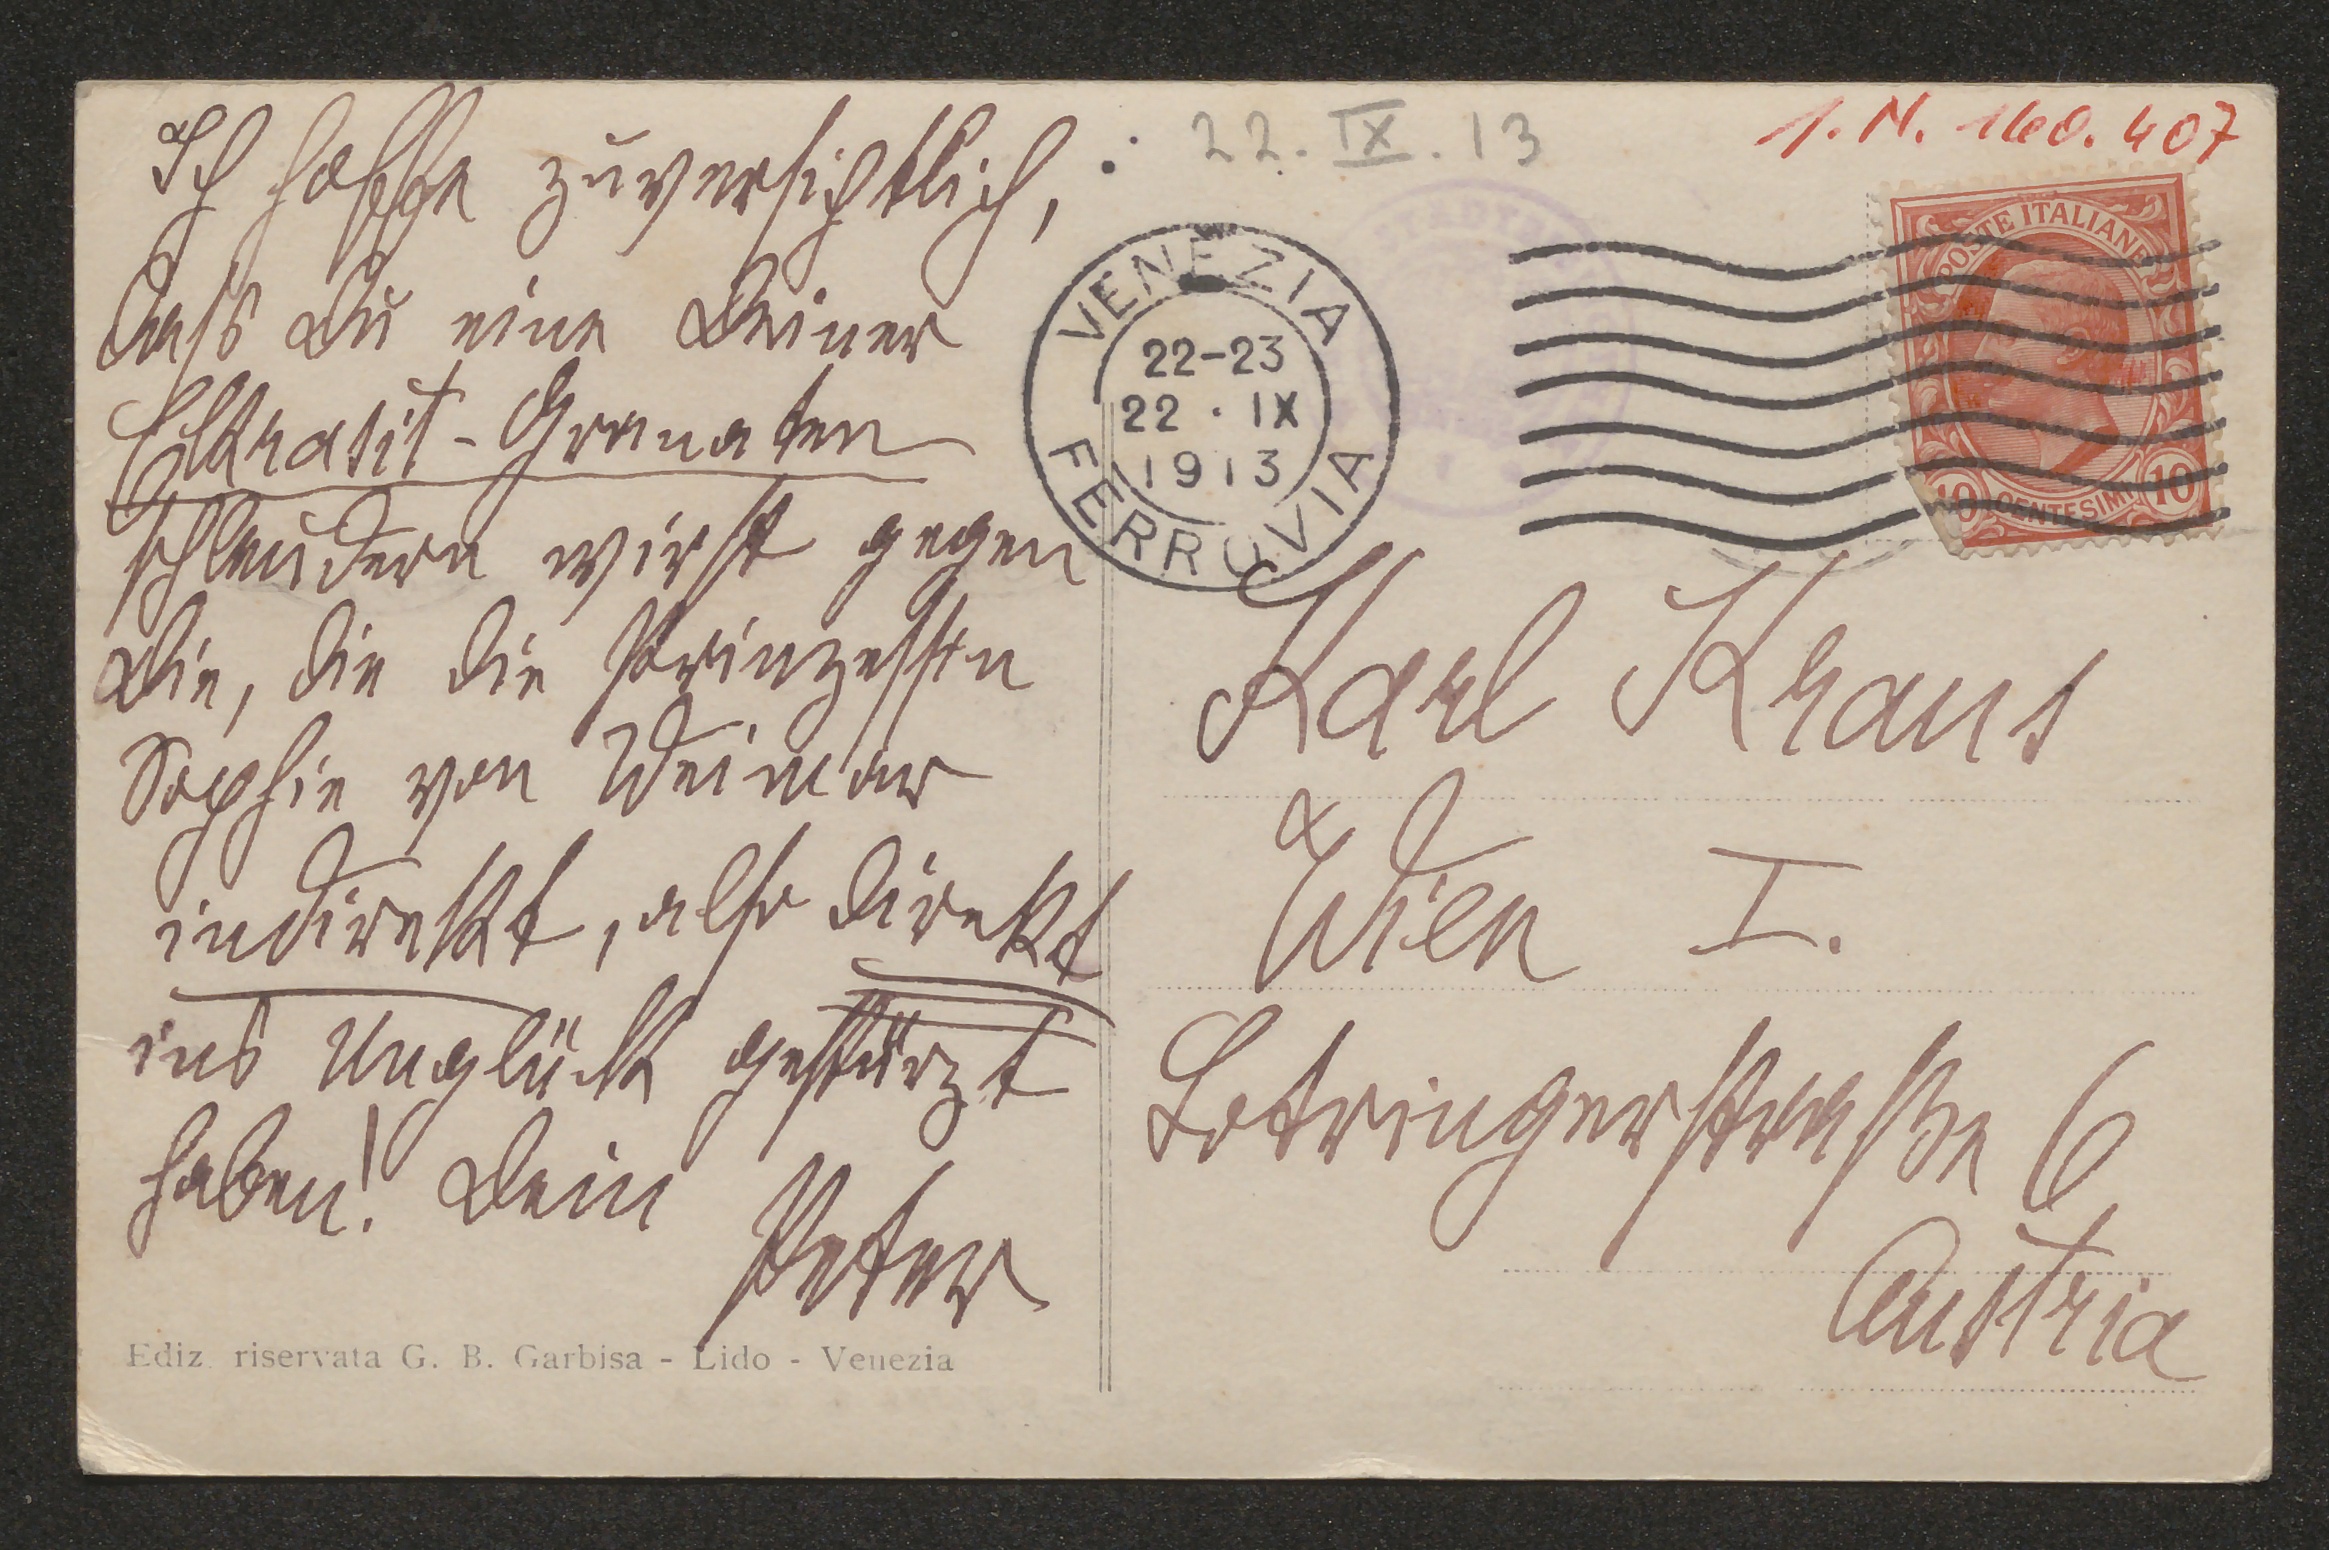 Ich hoffe zuversichtlich,
dass Du eine Deiner
Ekrasit-Granaten
schleudern wirst gegen
Die, die die Prinzessin
Sophie von Weimar
indirekt, also direkt
ins Unglück gestürzt
haben! Dein
Peter
Ediz. riservata G. B. Garbisa - Lido - Venezia
22. IX. 13
I. N. 160.407
VENEZIA
22-23
22 · IX
1913
FERROVIA
POSTE ITALIANE
10 CENTESIMI 10
Karl Kraus
Wien I.
Lotringerstraße 6
Austria